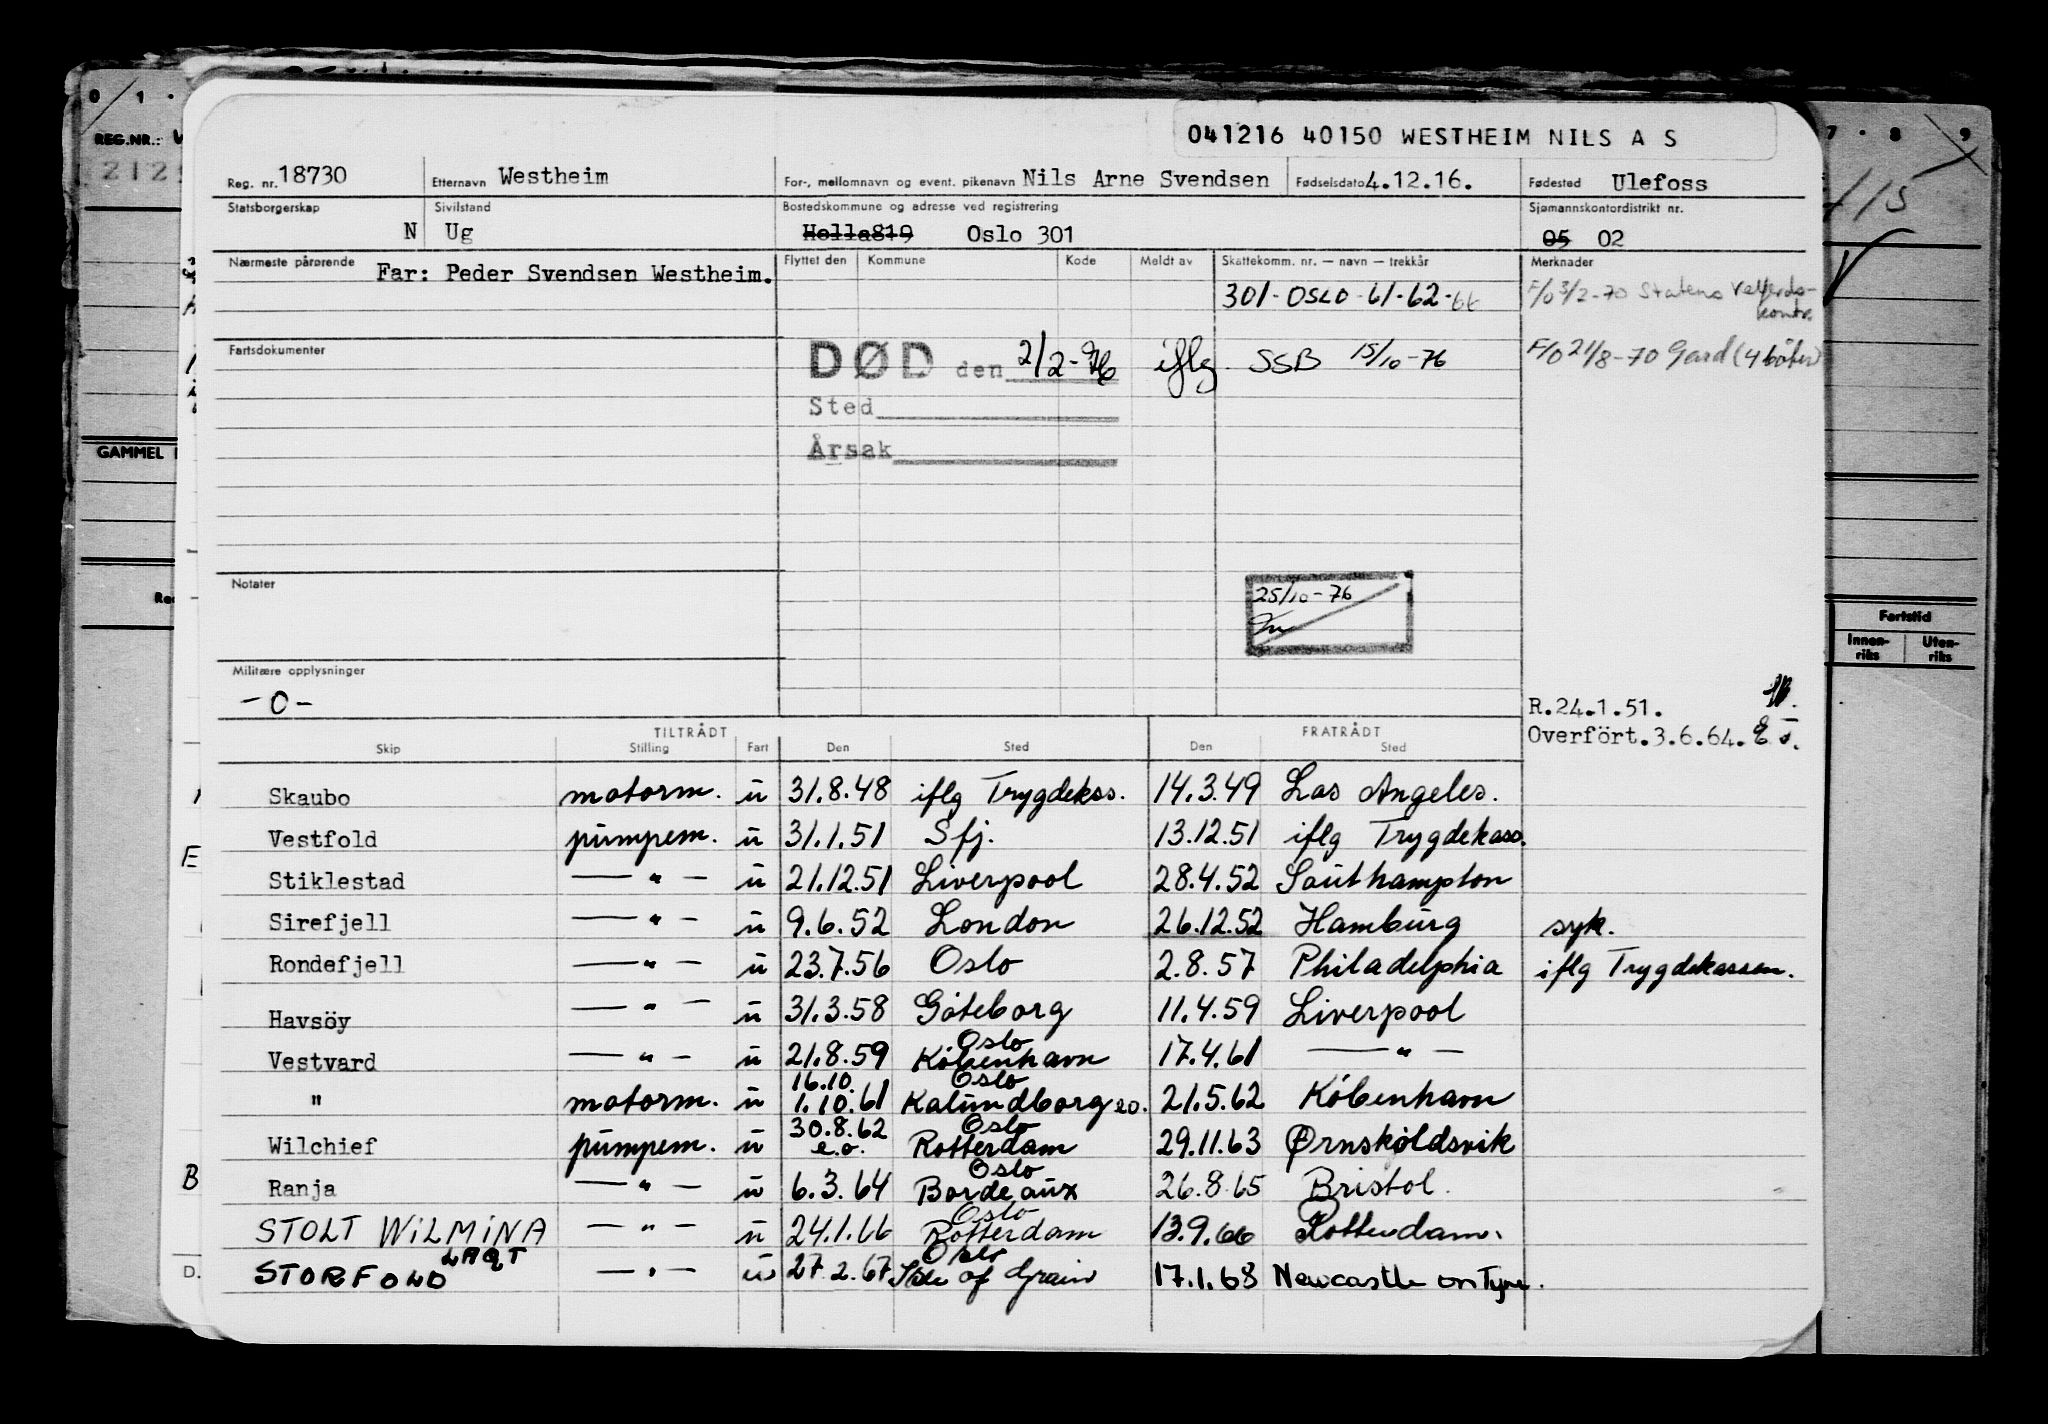 0 1 ·
7 · 8 9
REG.NR.:
041216 40150 WESTHEIM NILS A S
Reg. nr. 18730 Etternavn Westheim For-, mellomnavn og event. pikenavn Nils Arne Svendsen Fødselsdato 4.12.16. Fødested Ulefoss
Statsborgerskap N Sivilstand Ug Bostedskommune og adresse ved registrering Holla819 Oslo 301 Sjømannskontordistrikt nr. 05 02
Nærmeste pårørende Far: Peder Svendsen Westheim. Flyttet den Kommune Kode Meldt av Skattekomm. nr. — navn — trekkår Merknader
301-OSLO-61-62-66 F/O 3/2-70 Statens Velferdskontr.
Fartsdokumenter DØD den 2/2-76 iflg. SSB 15/10-76 F/O 21/8-70 Gard (4 bøker)
Sted
Årsak
GAMMEL
Notater 25/10-76
Fartstid
Innen-riks Uten-riks
Militære opplysninger
-0-
R.24.1.51.
Overfört.3.6.64.
TILTRÅDT FRATRÅDT
Skip Stilling Fart Den Sted Den Sted
Skaubo motorm. u 31.8.48 iflg Trygdekas. 14.3.49 Los Angeles.
Vestfold pumpem. u 31.1.51 Sfj. 13.12.51 iflg Trygdekass.
Stiklestad — " — u 21.12.51 Liverpool 28.4.52 Southampton
Sirefjell — " — u 9.6.52 London 26.12.52 Hamburg syk.
Rondefjell — " — u 23.7.56 Oslo 2.8.57 Philadelphia iflg Trygdekassen.
Havsöy — " — u 31.3.58 Göteborg 11.4.59 Liverpool
Oslo
Vestvard — " — u 21.8.59 København 17.4.61 — " —
16.10. Oslo
" motorm. u 1.10.61 Kalundborg eo. 21.5.62 København
30.8.62 Oslo
Wilchief pumpem. u e.o. Rotterdam 29.11.63 Ørnskøldsvik
Oslo
Ranja — " — u 6.3.64 Bordeaux 26.8.65 Bristol.
Oslo
STOLT WILMINA — " — u 24.1.66 Rotterdam 13.9.66 Rotterdam.
LAGT Oslo
STORFOLD — " — u 27.2.67 Isle of Grain 17.1.68 Newcastle on Tyne.